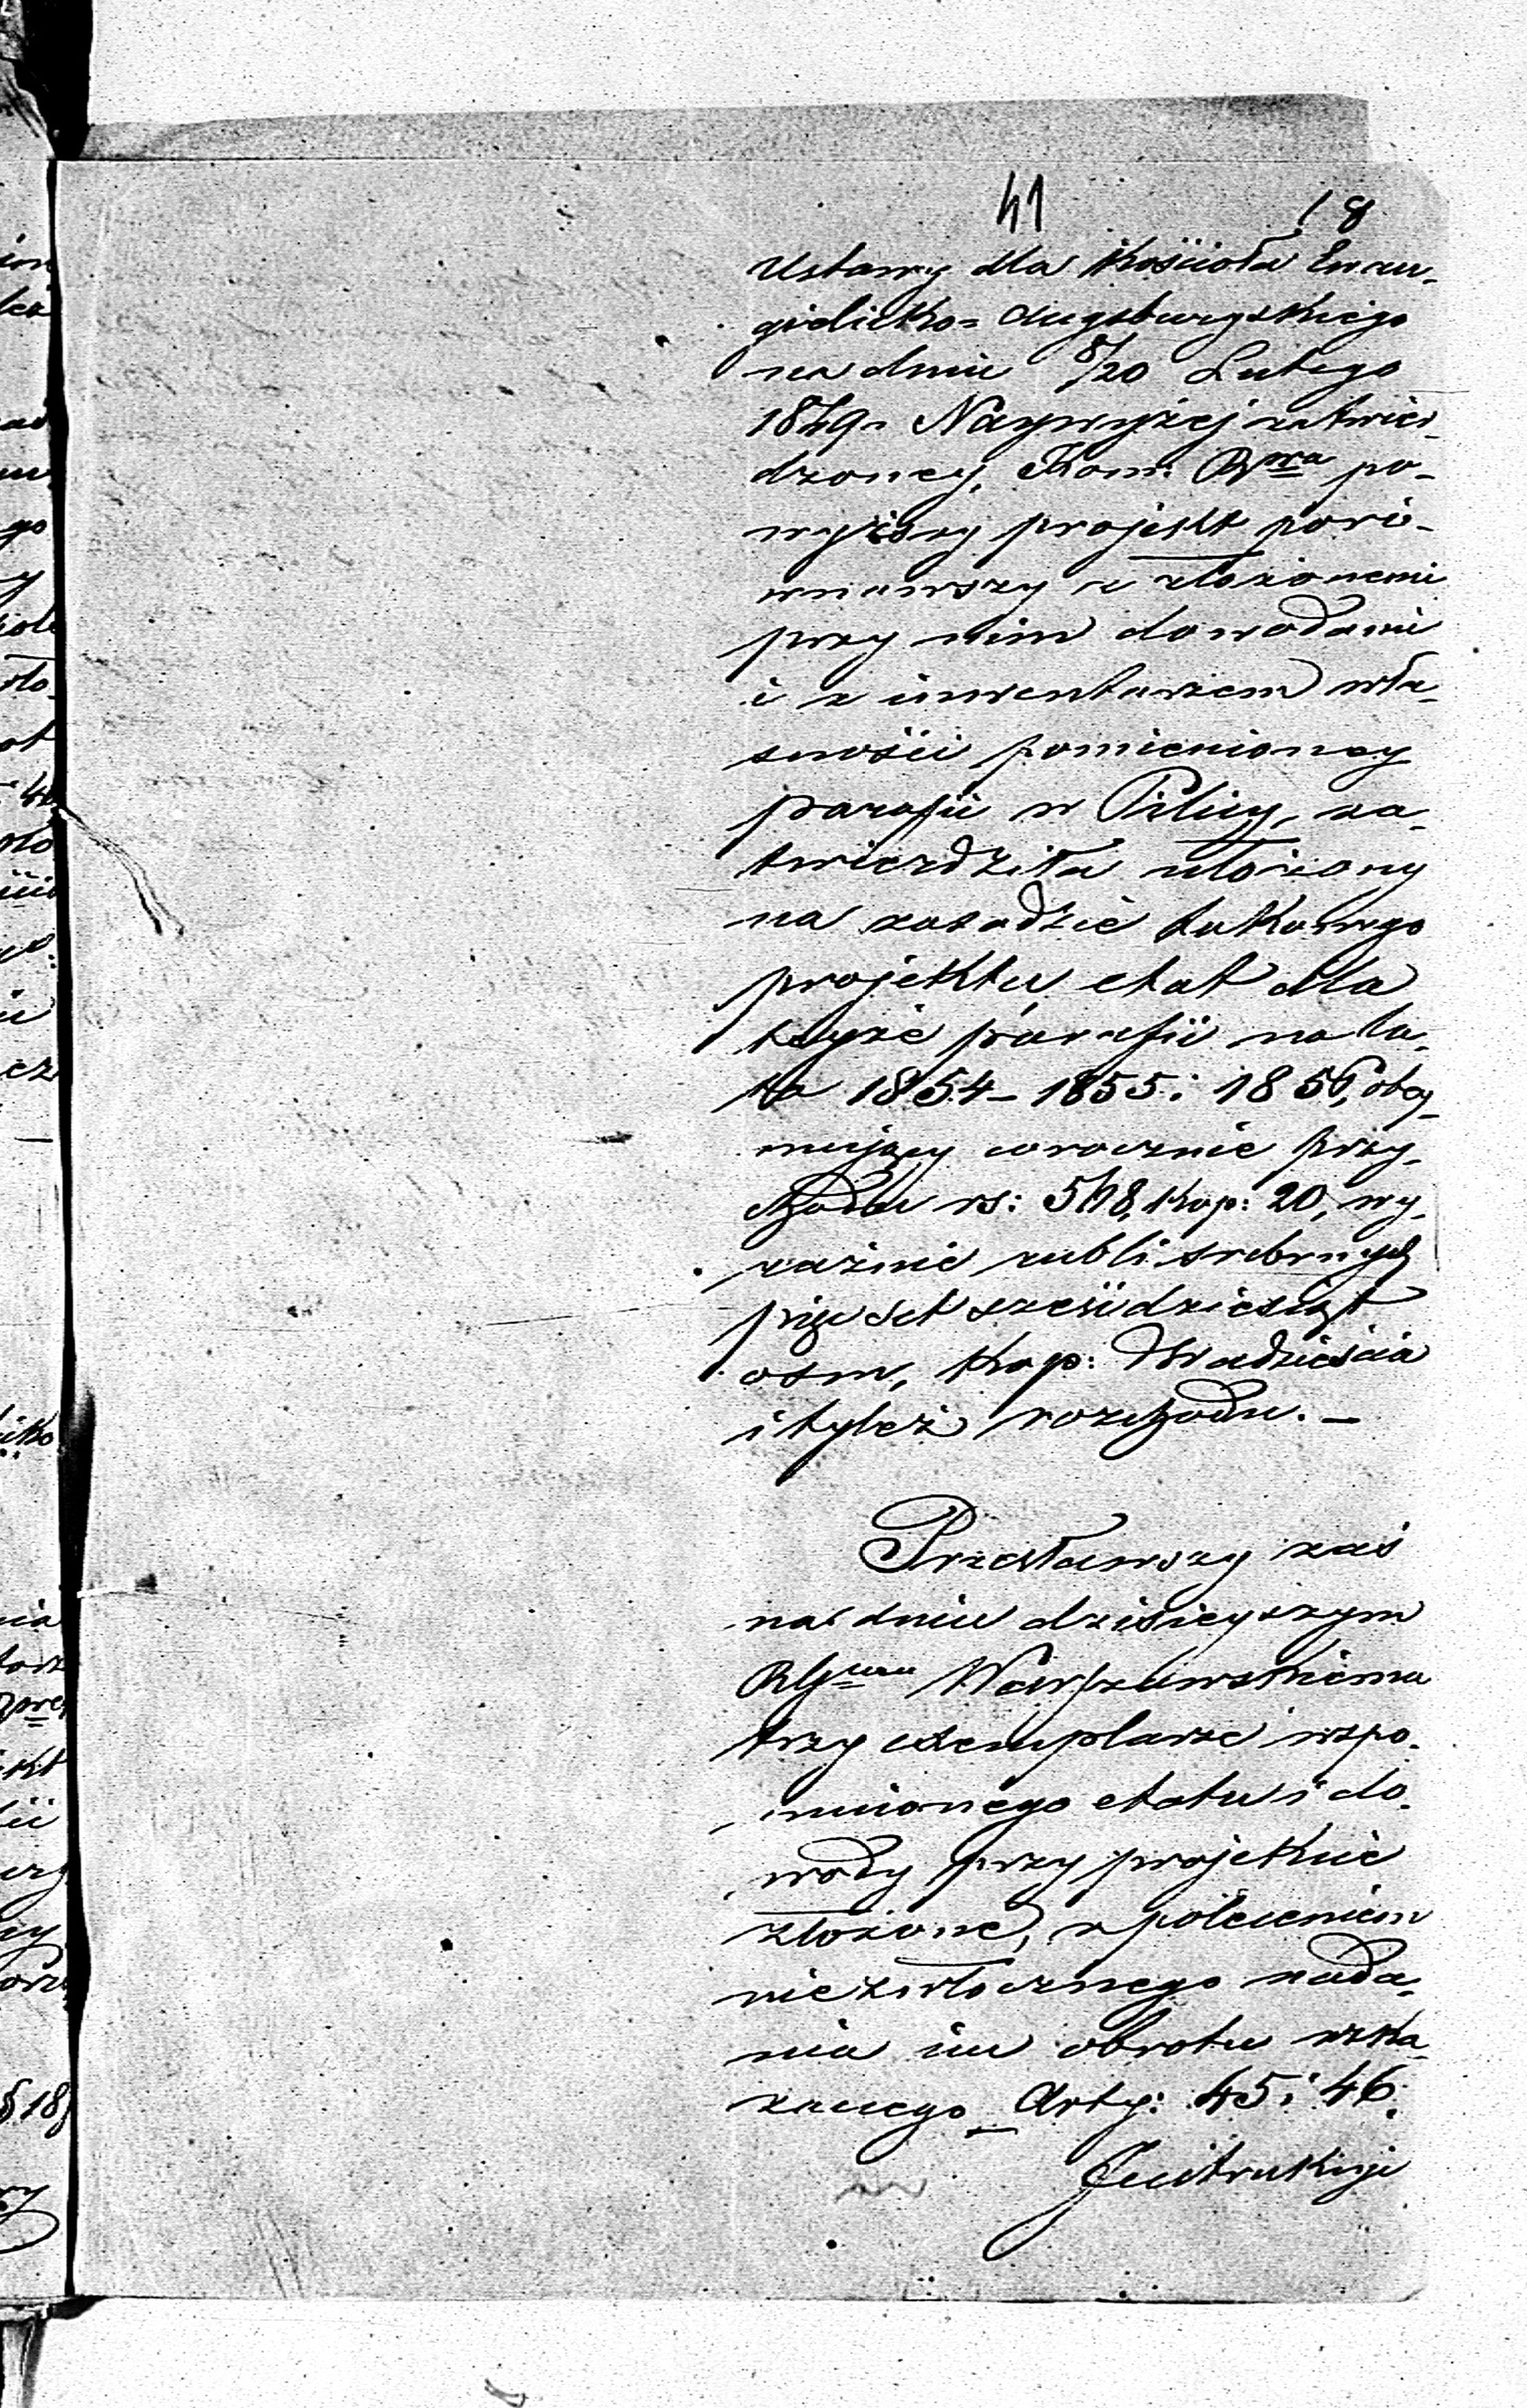 41 18
Ustawy dla Kościoła Ewan-
gielicko-Augsburgskiego
na dniu 8/20 Lutego
1849 r. Najwyżej zatwier-
dzoney, Kom: Rwa po-
wyższy projekt poró-
wnawszy z złożonemi
przy nim dowodami
i z inwentarzem wła-
sności pomienioney
parafii w Pilicy, za-
twierdziła ułożony
na zasadzie takowego
projektu etat dla
teyże parafii na la-
ta 1854 - 1855 i 1856, obey-
mujący corocznie przy-
chodu rs: 568, kop: 20, wy-
raźnie rubli srebrnych
pięćset sześćdziesiąt
osm, kop: dwadzieścia
i tyleż rozchodu. —
Przesławszy zaś
na dniu dzisieyszym
Rządowi Warszawskiemu
trzy exemplarze wspo-
mnionego etatu i do-
wody przy projekcie
złożone, z poleceniem
niezwłocznego nada-
nia im obrotu wska-
zanego Arty: 45 i 46
Instrukcji